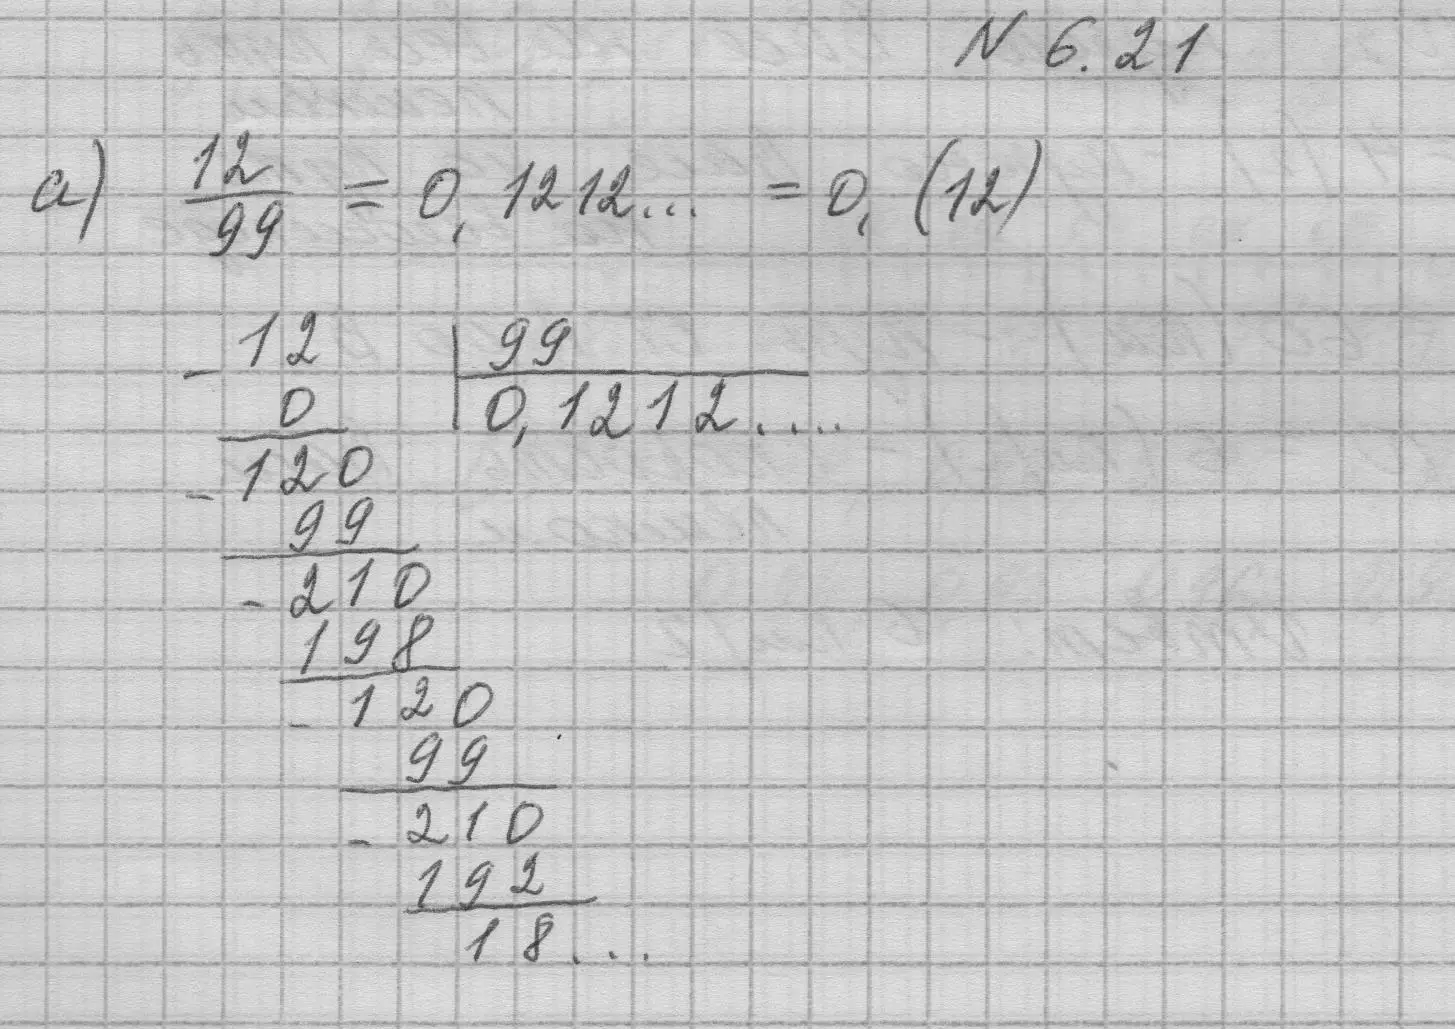 N 6.21
а) 12/99 = 0,1212... = 0,(12)
- 12 | 99
0 | 0,1212....
- 120
99
- 210
198
- 120
99
- 210
192
18...